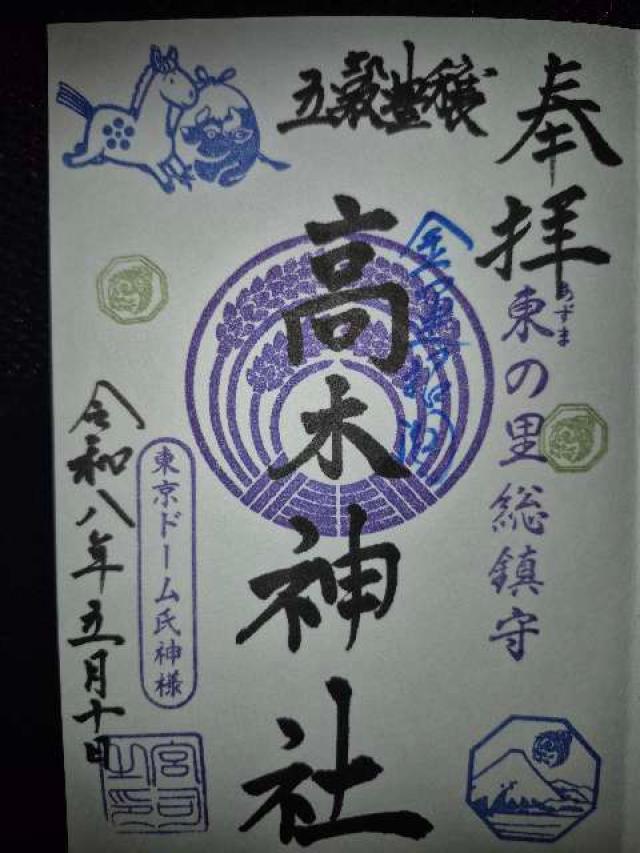 奉拝
東の里総鎮守
あずま
五穀豊穣
高木神社
東京ドーム氏神様
令和八年五月十日
宮司之印